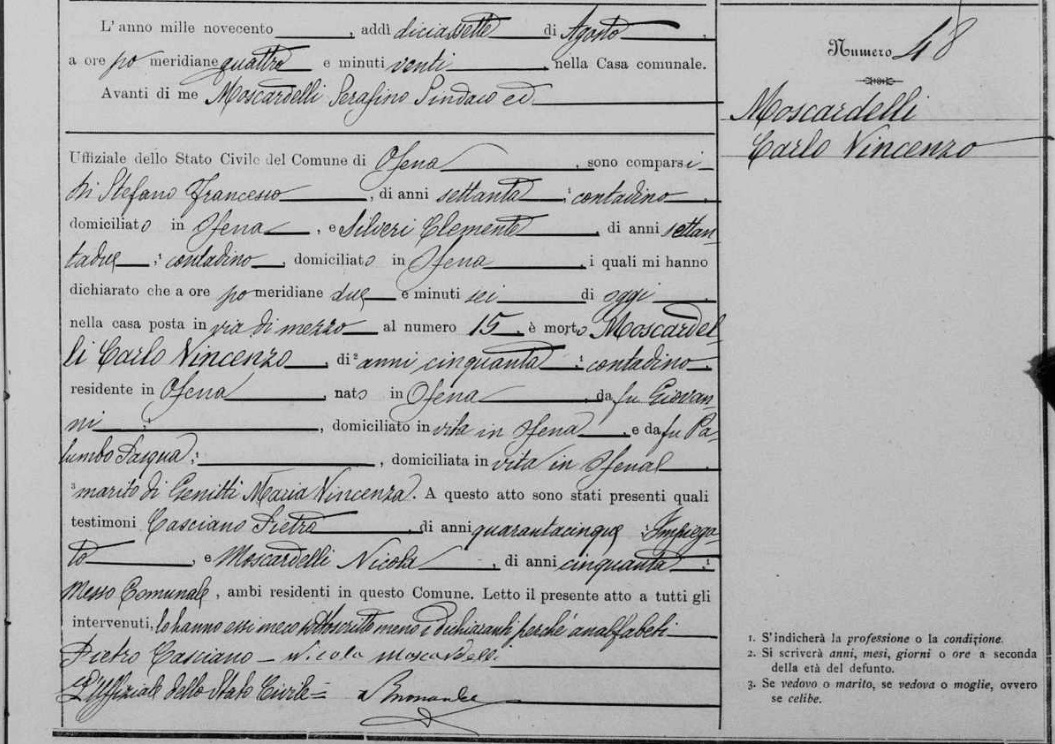 L'anno mille novecento , addì diciassette di Agosto
a ore po meridiane quattro e minuti venti , nella Casa comunale.
Avanti di me Moscardelli Serafino Sindaco ed
Uffiziale dello Stato Civile del Comune di Ofena , sono comparsi
Di Stefano Francesco , di anni settanta : contadino
domiciliato in Ofena , e Silveri Clemente , di anni settan-
tadue : contadino , domiciliato in Ofena , i quali mi hanno
dichiarato che a ore po meridiane due e minuti sei di oggi ,
nella casa posta in via di mezzo al numero 15 , è morto Moscardel-
li Carlo Vincenzo , di ² anni cinquanta : contadino
residente in Ofena , nato in Ofena , da fu Giovan-
ni : , domiciliato in vita in Ofena e da fu Pa-
lumbo Pasqua : , domiciliata in vita in Ofena
³ marito di Genitti Maria Vincenza . A questo atto sono stati presenti quali
testimoni Casciano Pietro , di anni quarantacinque : Impiega-
to , e Moscardelli Nicola , di anni cinquanta :
Messo Comunale , ambi residenti in questo Comune. Letto il presente atto a tutti gli
intervenuti, lo hanno essi meco sottoscritto meno i dichiaranti perchè analfabeti
Pietro Casciano – Nicola Moscardelli
L'Uffiziale dello Stato Civile =
Numero 48
Moscardelli
Carlo Vincenzo
1. S'indicherà la professione o la condizione.
2. Si scriverà anni, mesi, giorni o ore a seconda
della età del defunto.
3. Se vedovo o marito, se vedova o moglie, ovvero
se celibe.